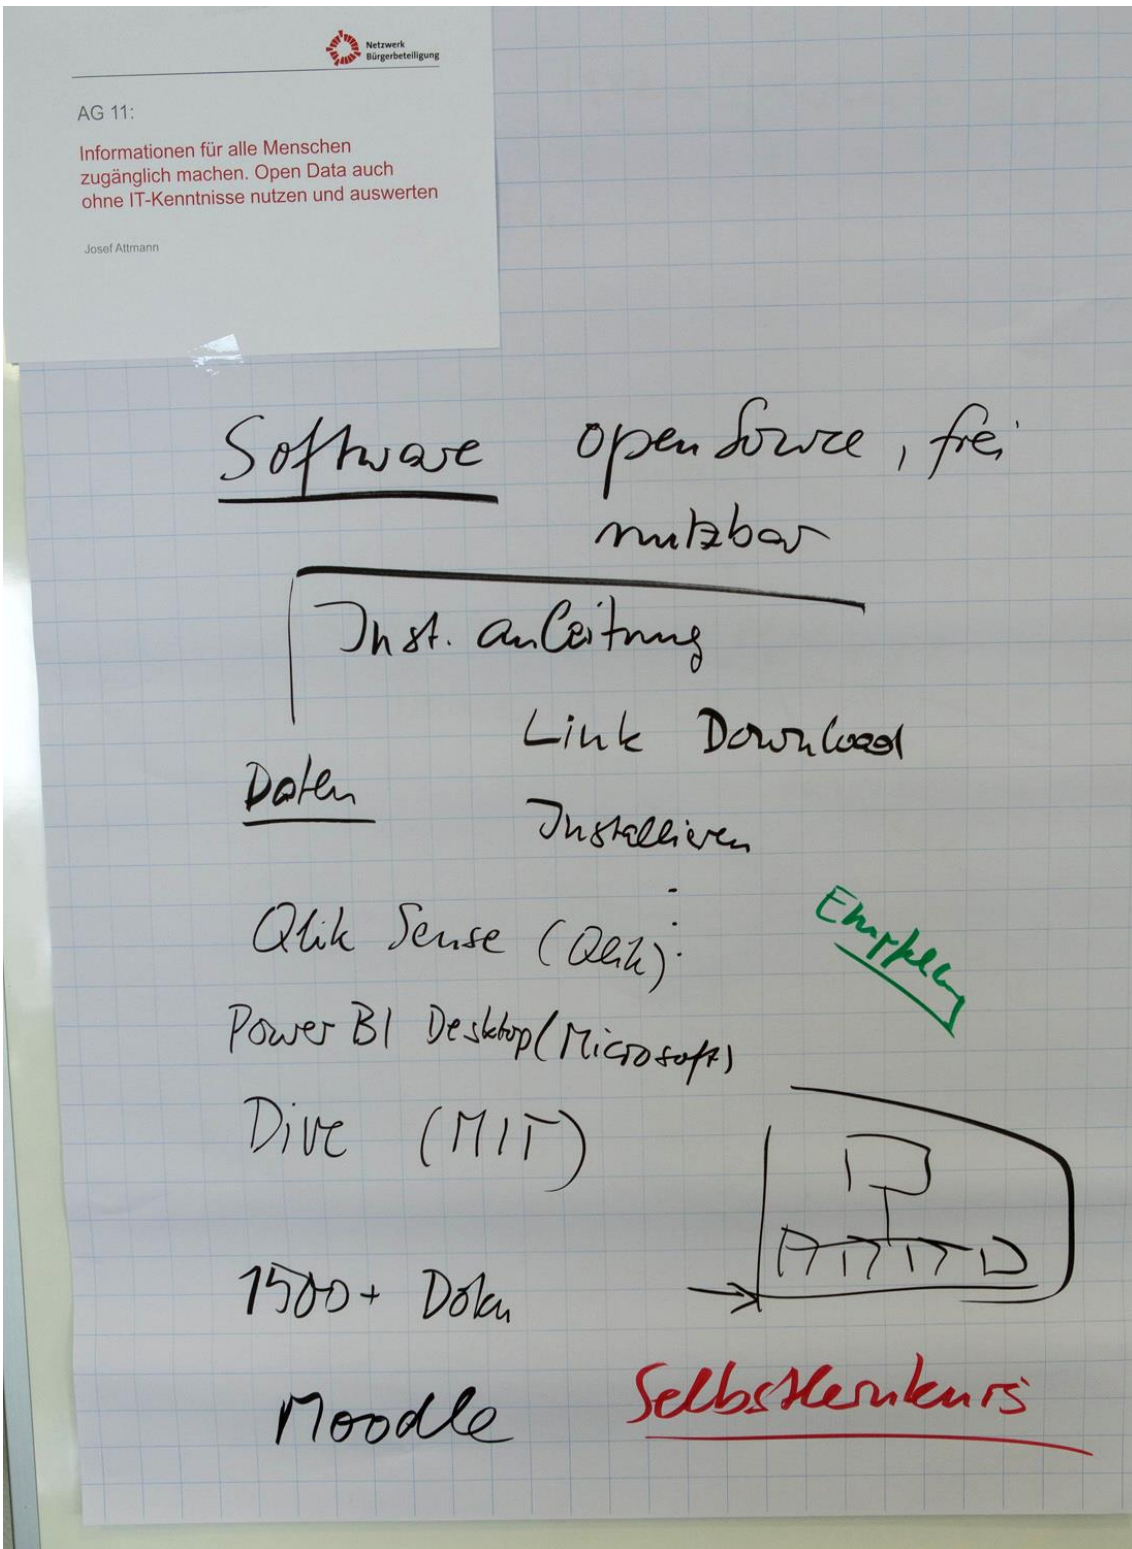 Netzwerk
Bürgerbeteiligung
AG 11:
Informationen für alle Menschen
zugänglich machen. Open Data auch
ohne IT-Kenntnisse nutzen und auswerten
Josef Attmann
Software open Source, frei
nutzbar
Inst. anleitung
Link Download
Daten
Installieren
Qlik Sense (Qlik)
Power BI Desktop (Microsoft)
Dive (MIT)
1500+
Moodle
Selbstlernkurs